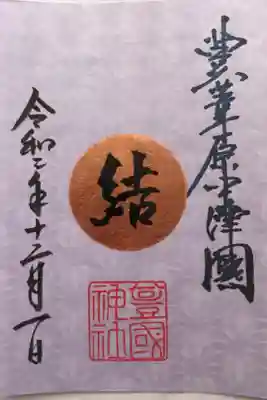 豊葦原中津國
結
豊國
神社
令和二年十二月一日